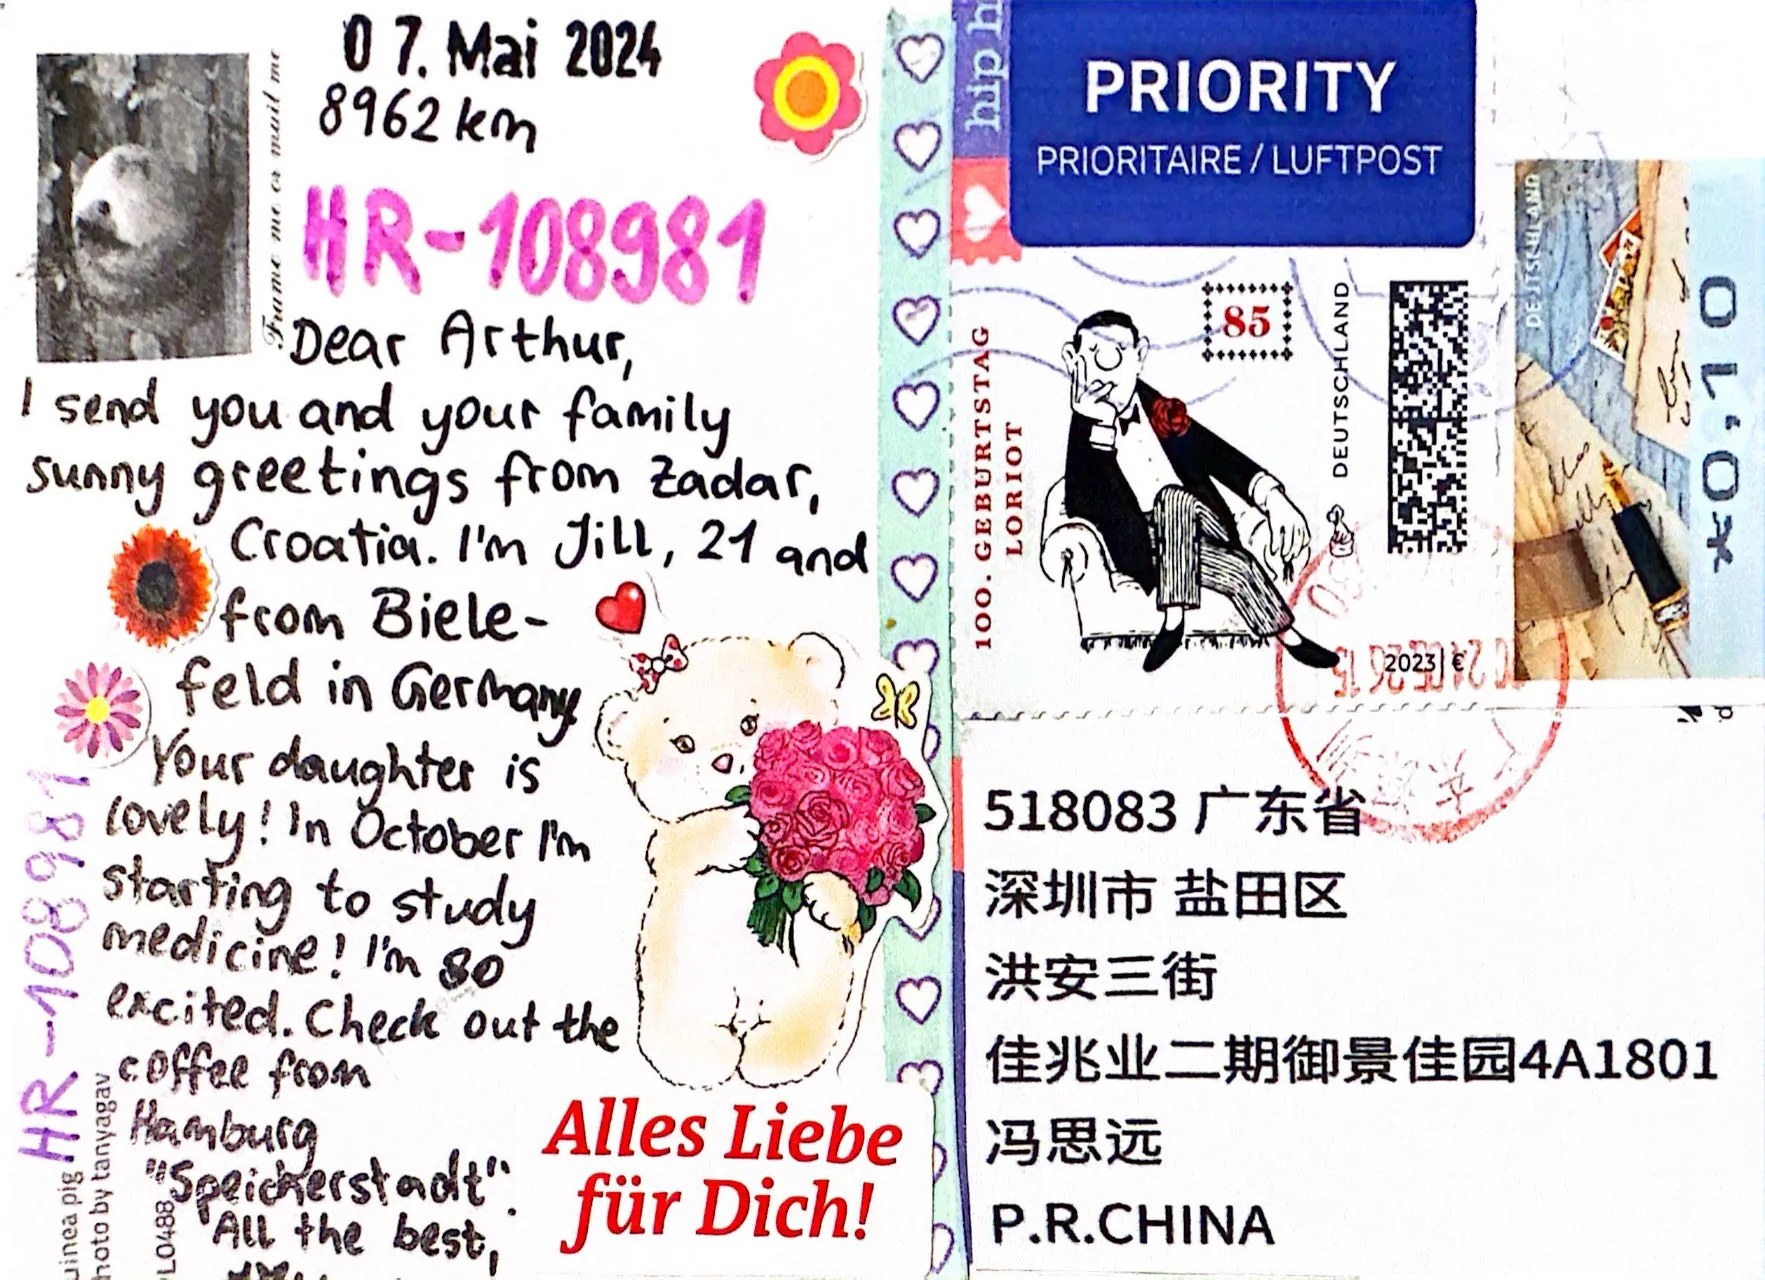 07. Mai 2024
8962 km
HR-108981
Frame me or mail me
Dear Arthur,
I send you and your family
sunny greetings from Zadar,
Croatia. I'm Jill, 21 and
from Biele-
feld in Germany
Your daughter is
lovely! In October I'm
starting to study
medicine! I'm so
excited. Check out the
coffee from
Hamburg
"Speicherstadt".
All the best,
HR-108981
uinea pig
hoto by tanyagav
LO488
Alles Liebe
für Dich!
hip h
PRIORITY
PRIORITAIRE / LUFTPOST
100. GEBURTSTAG
LORIOT
85
DEUTSCHLAND
2023 | €
DEUTSCHLAND
*0,10
518083 广东省
深圳市 盐田区
洪安三街
佳兆业二期御景佳园4A1801
冯思远
P.R.CHINA